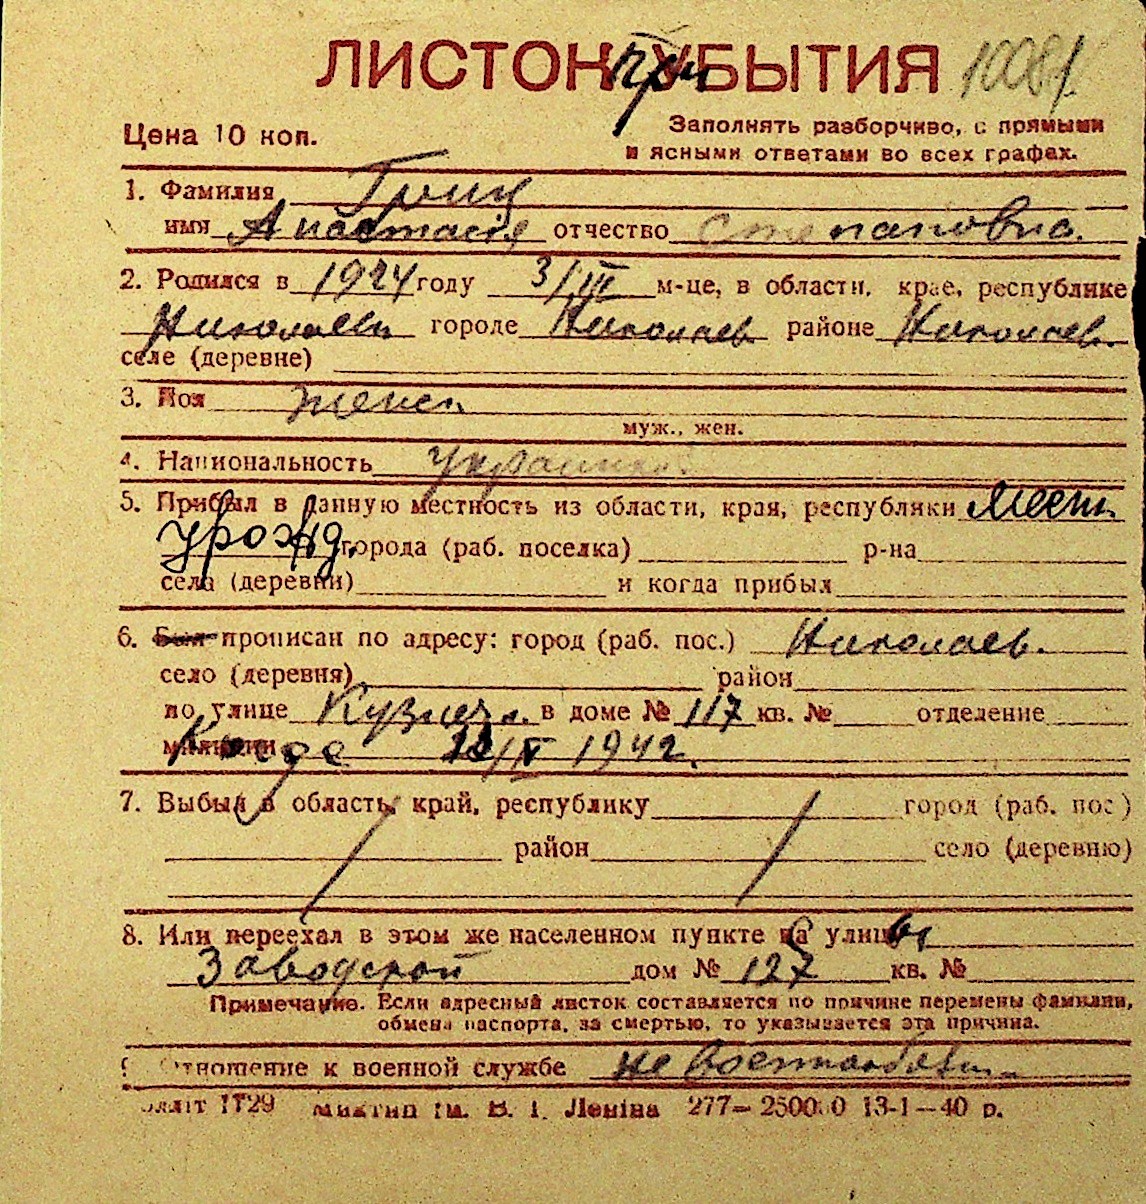 ЛИСТОК при УБЫТИЯ 10081
Цена 10 коп.
Заполнять разборчиво, с прямыми
и ясными ответами во всех графах.
1. Фамилия Гриц
имя Анастасія отчество Степановна.
2. Родился в 1924 году 3/III м-це, в области, крае, республике
Николаевск городе Николаев районе Николаев.
селе (деревне)
3. Пол женск.
муж., жен.
4. Национальность украинка
5. Прибыл в данную местность из области, края, республики Местн.
урожд. города (раб. поселка) р-на
села (деревни) и когда прибыл
6. Был прописан по адресу: город (раб. пос.) Николаев.
село (деревня) район
по улице Кузнечн. в доме № 117 кв. № отделение
милиции Когда IV 1942.
7. Выбыл в область, край, республику город (раб. пос)
район село (деревню)
8. Или переехал в этом же населенном пункте на улицы
Заводской дом № 127 кв. №
Примечание. Если адресный листок составляется по причине перемены фамилии,
обмена паспорта, за смертью, то указывается эта причина.
Отношение к военной службе не военнообяз.
1Т29 ім. В. І. Леніна 277— 13-1—40 р.